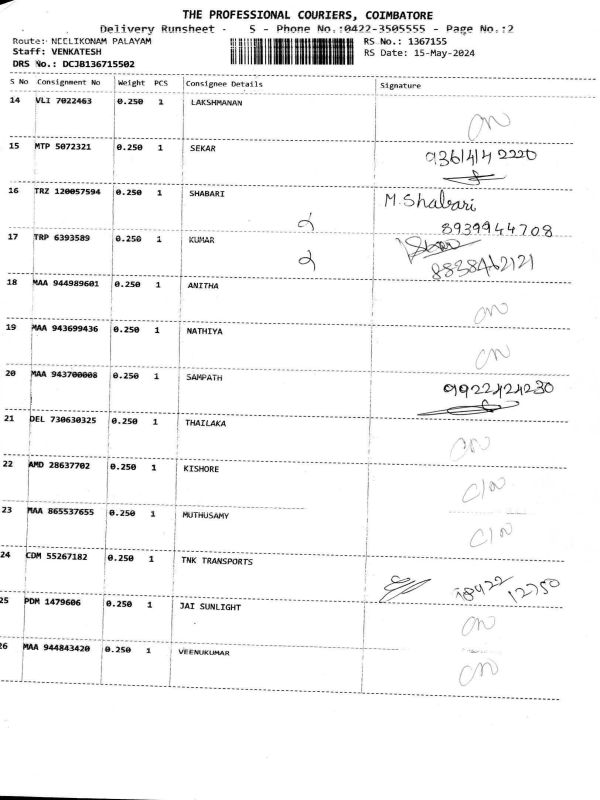 THE PROFESSIONAL COURIERS, COIMBATORE
Delivery Runsheet - S - Phone No.:0422-3505555 - Page No.:2
Route: NEELIKONAM PALAYAM RS No.: 1367155
Staff: VENKATESH RS Date: 15-May-2024
DRS No.: DCJB136715502
S No Consignment No Weight PCS Consignee Details Signature
14 VLI 7022463 0.250 1 LAKSHMANAN
15 MTP 5072321 0.250 1 SEKAR 9361414 2220
16 TRZ 120057594 0.250 1 SHABARI M. Shabari
8939944708
17 TRP 6393589 0.250 1 KUMAR
8838462121
18 MAA 944989601 0.250 1 ANITHA
19 MAA 943699436 0.250 1 NATHIYA
20 MAA 943700008 0.250 1 SAMPATH 9922424230
21 DEL 730630325 0.250 1 THAILAKA
22 AMD 28637702 0.250 1 KISHORE
23 MAA 865537655 0.250 1 MUTHUSAMY
24 CDM 55267182 0.250 1 TNK TRANSPORTS 12750
25 PDM 1479606 0.250 1 JAI SUNLIGHT
26 MAA 944843420 0.250 1 VEENUKUMAR